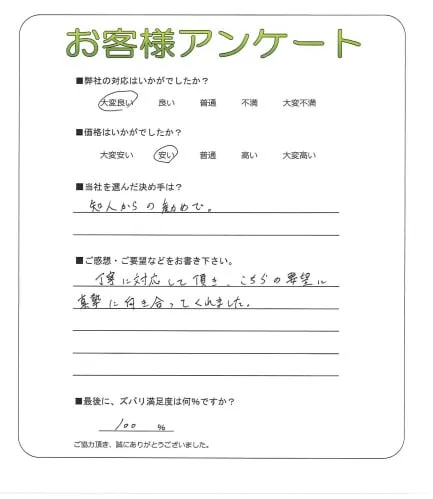 お客様アンケート
■弊社の対応はいかがでしたか？
大変良い 良い 普通 不満 大変不満
■価格はいかがでしたか？
大変安い 安い 普通 高い 大変高い
■当社を選んだ決め手は？
知人からの勧めで。
■ご感想・ご要望などをお書き下さい。
丁寧に対応して頂き、こちらの要望に
真摯に向き合ってくれました。
■最後に、ズバリ満足度は何％ですか？
100 ％
ご協力頂き、誠にありがとうございました。